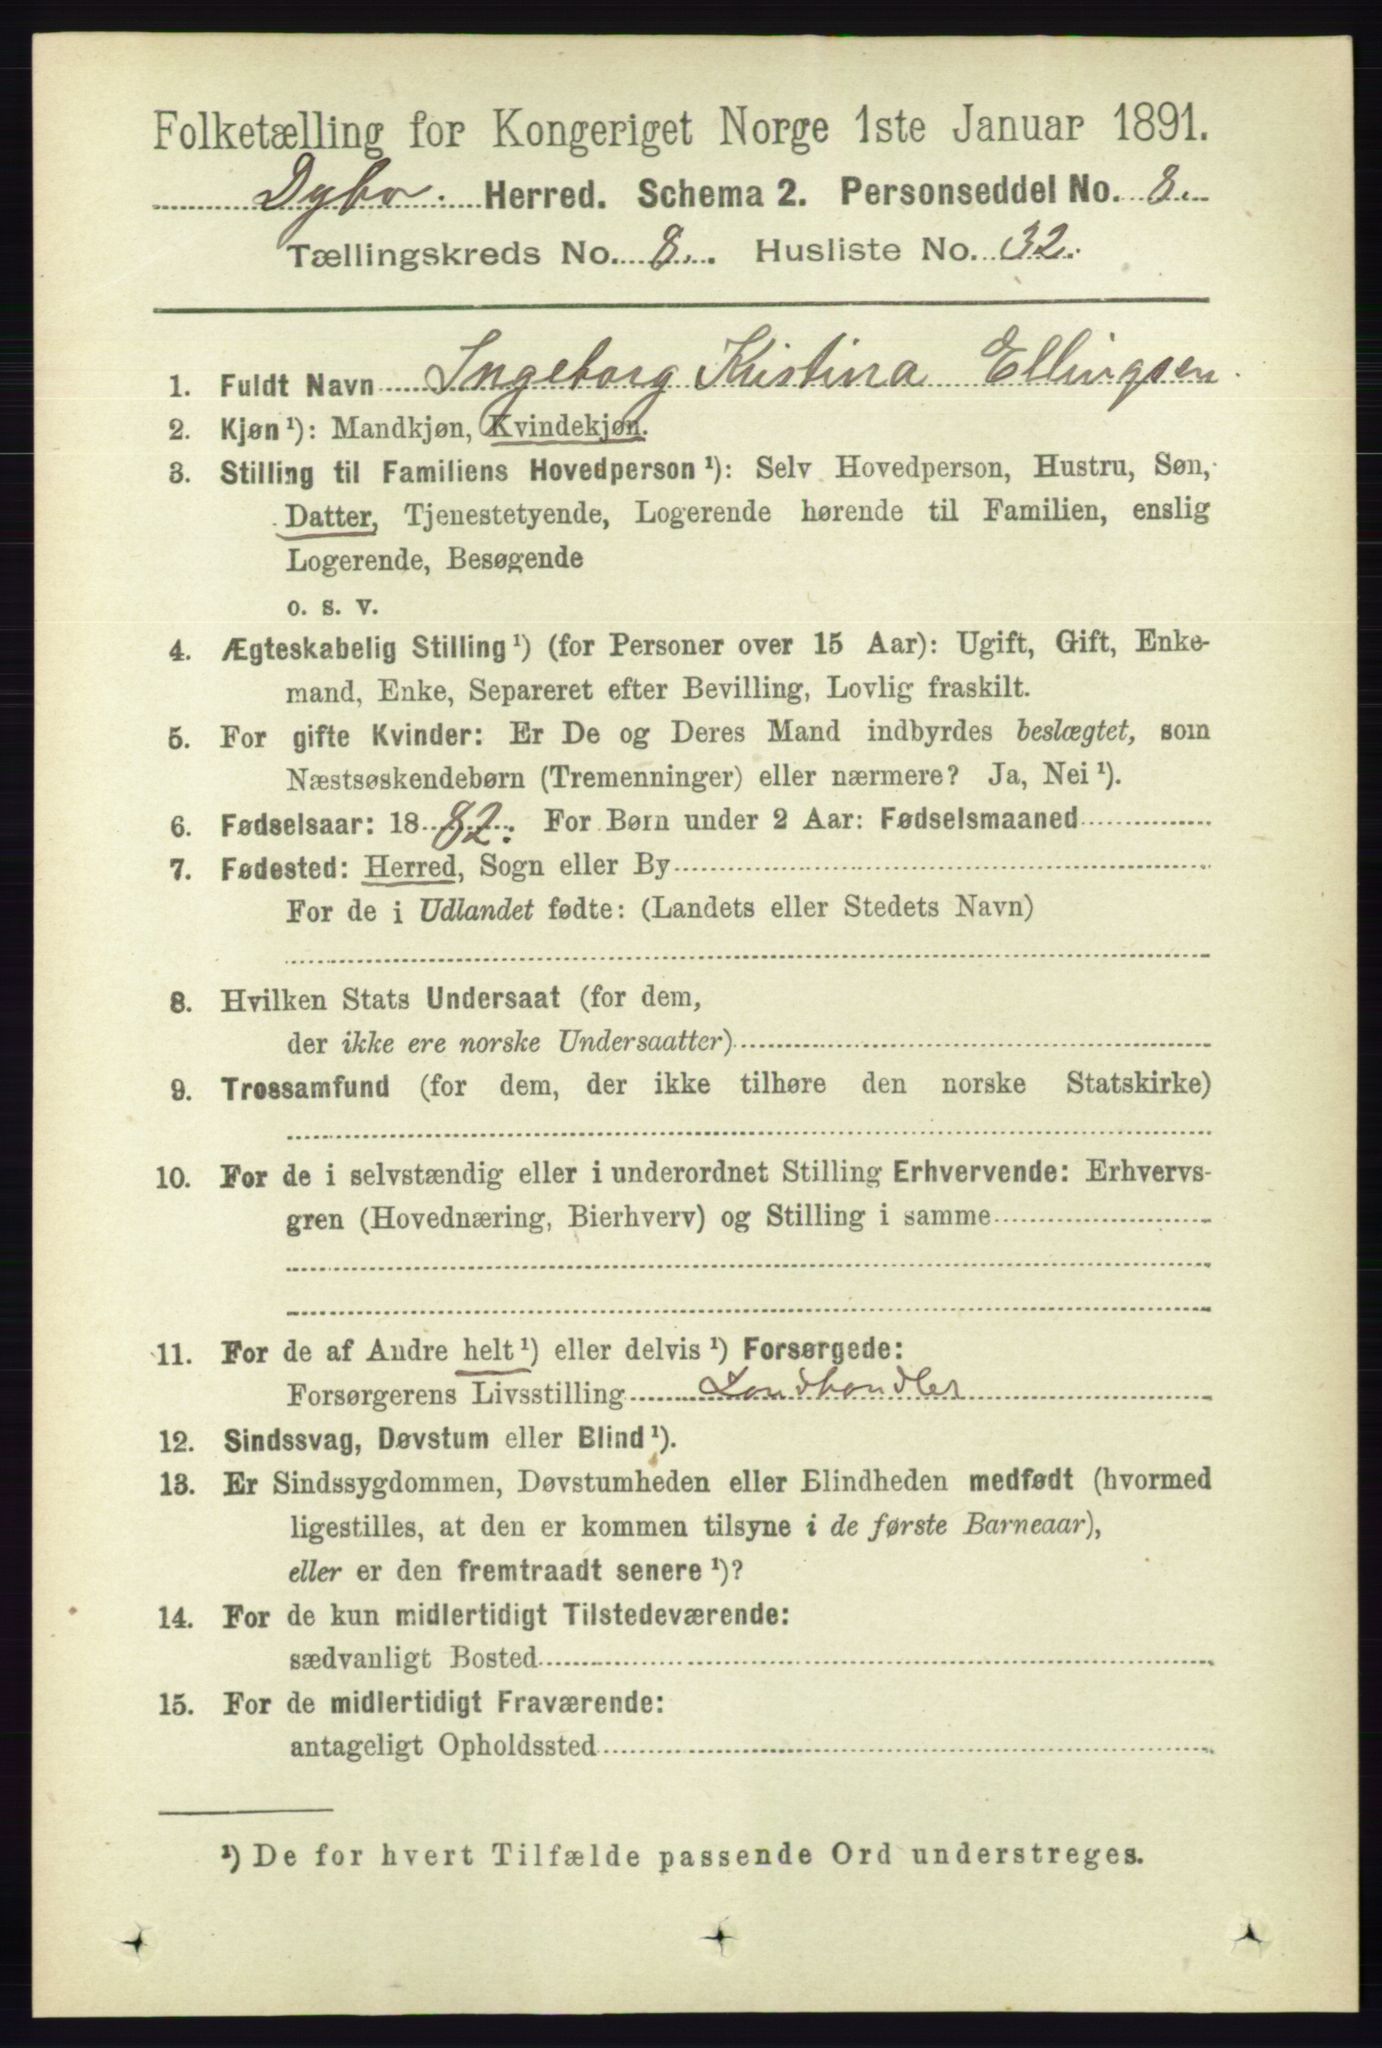 Folketælling for Kongeriget Norge 1ste Januar 1891.
Dybø. Herred. Schema 2. Personseddel No. 8.
Tællingskreds No. 8. Husliste No. 32.
1. Fuldt Navn Ingeborg Kristina Ellingsen.
2. Kjøn ¹): Mandkjøn, Kvindekjøn.
3. Stilling til Familiens Hovedperson ¹): Selv Hovedperson, Hustru, Søn,
Datter, Tjenestetyende, Logerende hørende til Familien, enslig
Logerende, Besøgende
o. s. v.
4. Ægteskabelig Stilling ¹) (for Personer over 15 Aar): Ugift, Gift, Enke-
mand, Enke, Separeret efter Bevilling, Lovlig fraskilt.
5. For gifte Kvinder: Er De og Deres Mand indbyrdes beslægtet, som
Næstsøskendebørn (Tremenninger) eller nærmere? Ja, Nei ¹).
6. Fødselsaar: 1882. For Børn under 2 Aar: Fødselsmaaned
7. Fødested: Herred, Sogn eller By
For de i Udlandet fødte: (Landets eller Stedets Navn)
8. Hvilken Stats Undersaat (for dem,
der ikke ere norske Undersaatter)
9. Trossamfund (for dem, der ikke tilhøre den norske Statskirke)
10. For de i selvstændig eller i underordnet Stilling Erhvervende: Erhvervs-
gren (Hovednæring, Bierhverv) og Stilling i samme
11. For de af Andre helt ¹) eller delvis ¹) Forsørgede:
Forsørgerens Livsstilling Landhandler
12. Sindssvag, Døvstum eller Blind ¹).
13. Er Sindssygdommen, Døvstumheden eller Blindheden medfødt (hvormed
ligestilles, at den er kommen tilsyne i de første Barneaar),
eller er den fremtraadt senere ¹)?
14. For de kun midlertidigt Tilstedeværende:
sædvanligt Bosted
15. For de midlertidigt Fraværende:
antageligt Opholdssted
¹) De for hvert Tilfælde passende Ord understreges.